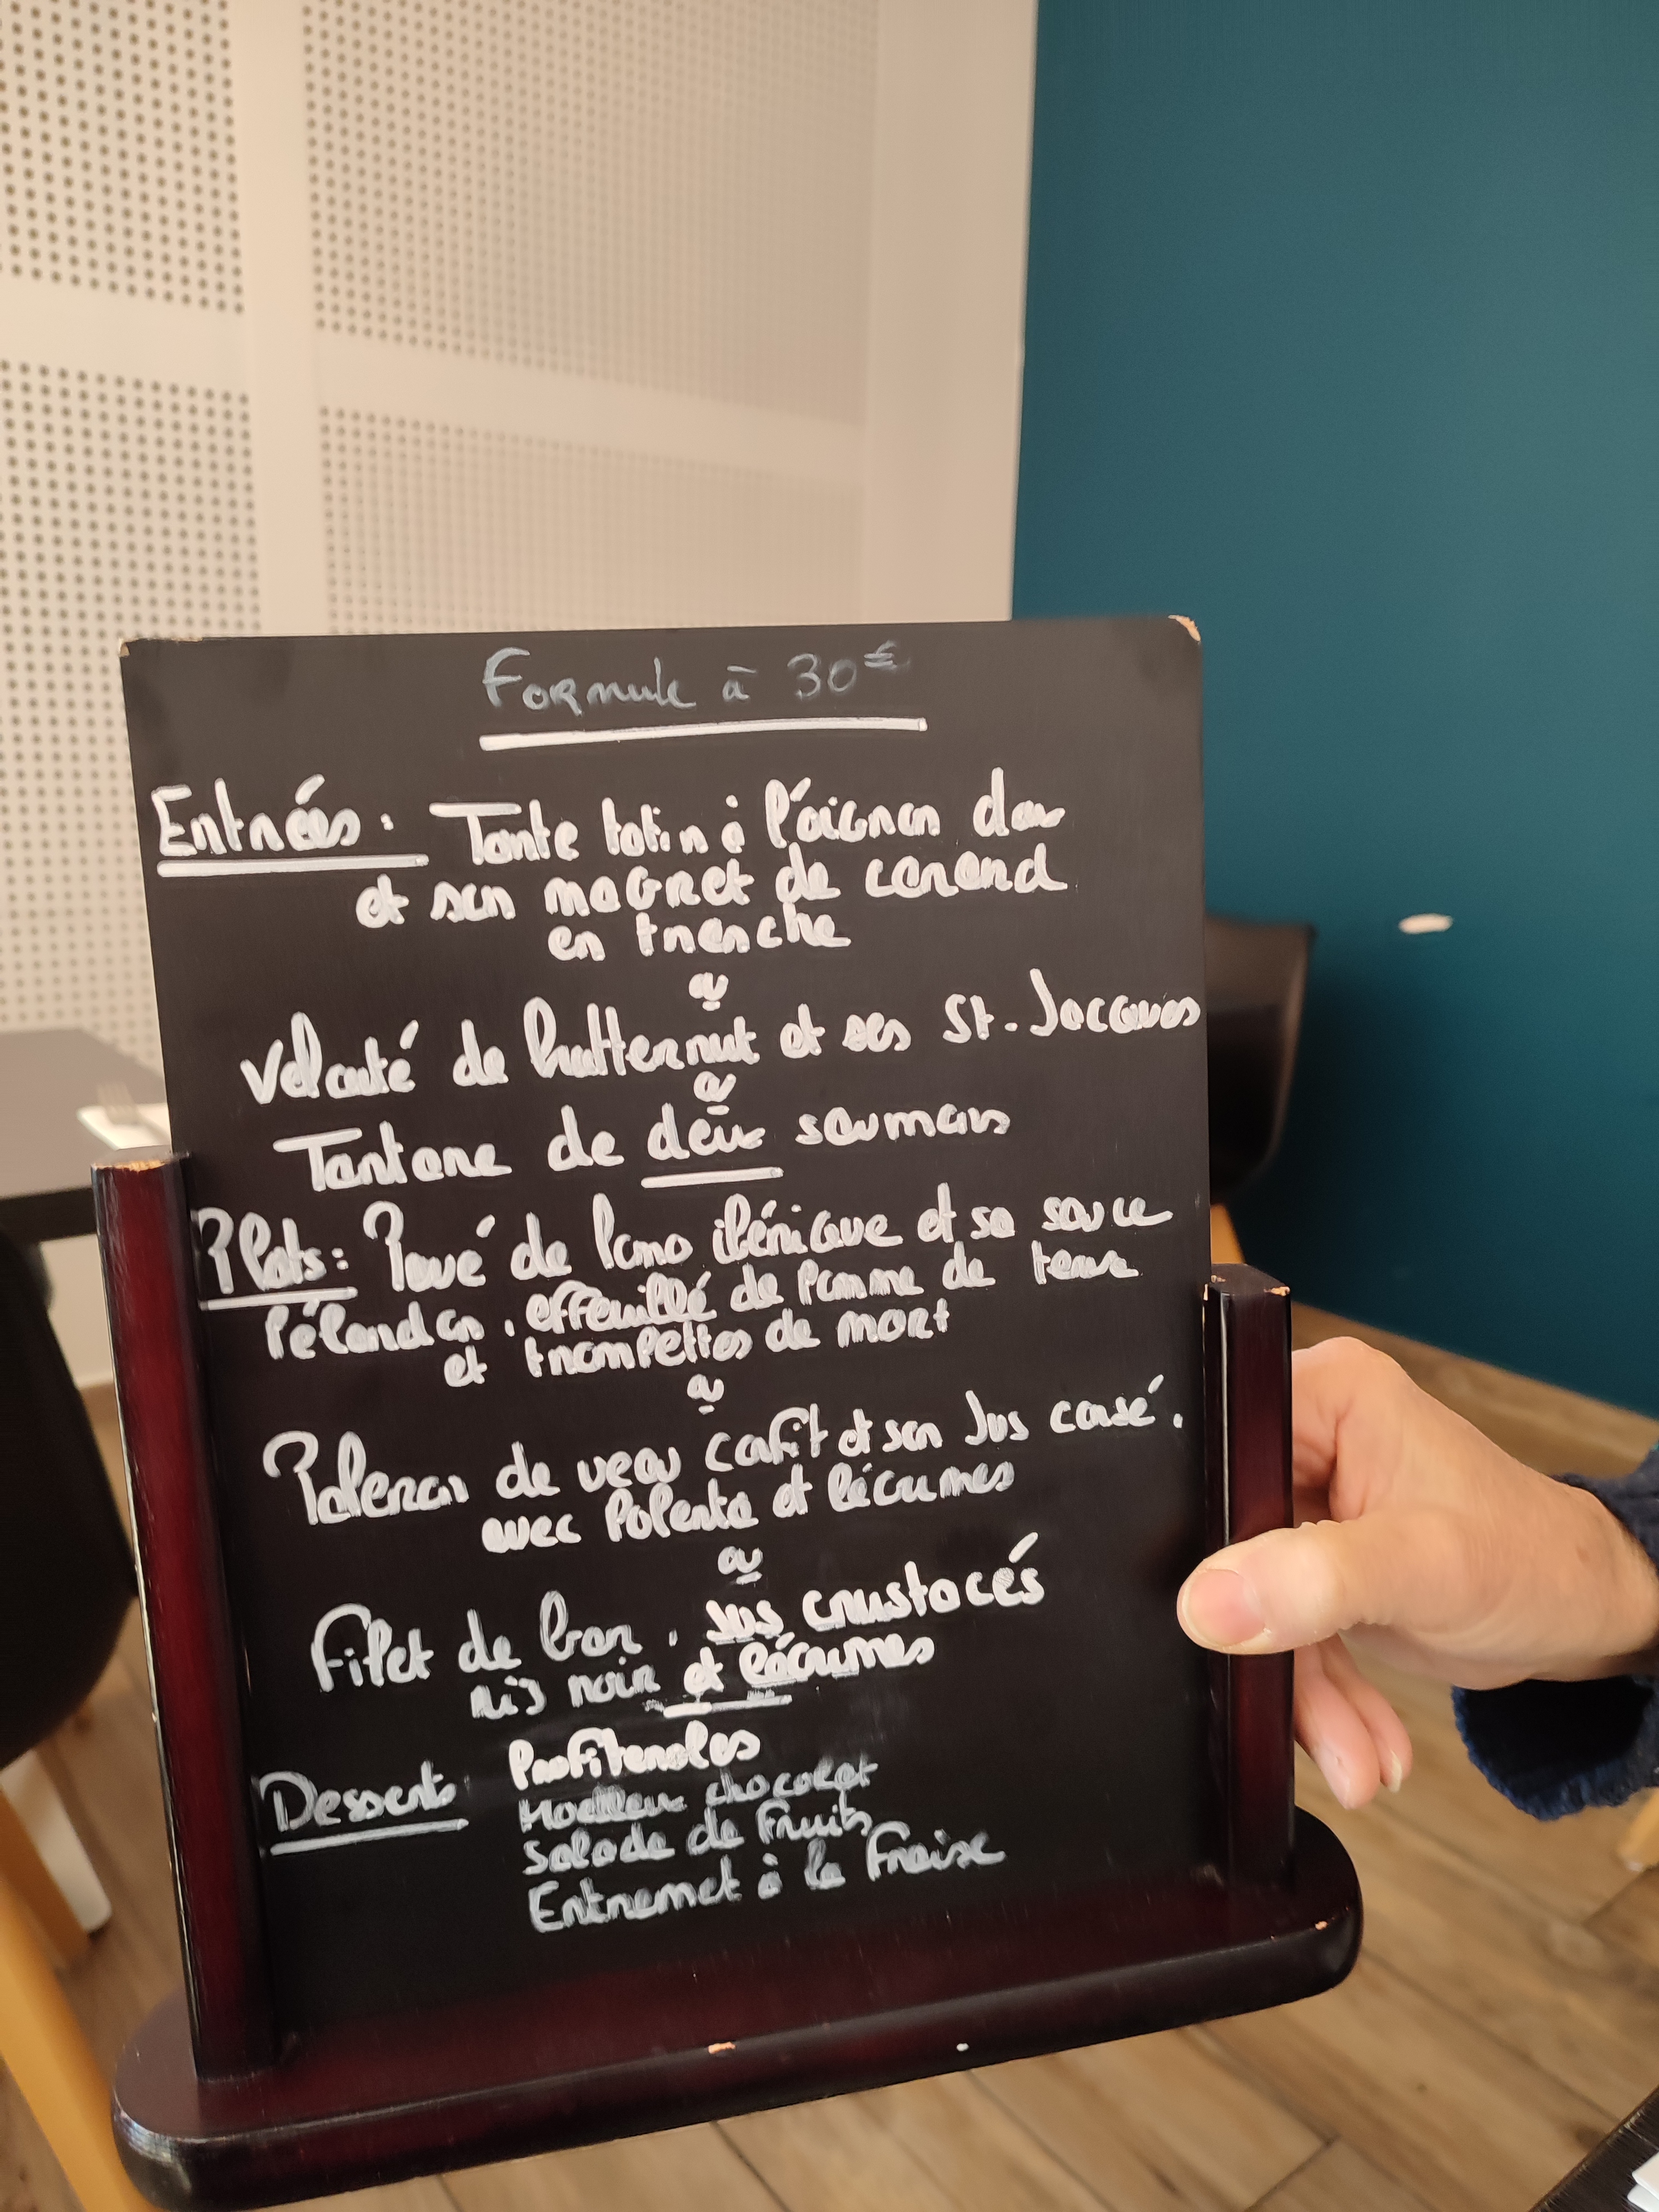 Formule à 30€
Entrées: Tarte tatin à l'oignon doux
et son magret de canard
en tranche
ou
Velouté de butternut et ses St-Jacques
ou
Tartare de deux saumons
Plats: Pavé de lomo ibérique et sa sauce
Pélandon, effeuillé de pomme de terre
et trompettes de mort
ou
Paleron de veau confit et son jus corsé,
avec polenta et légumes
ou
Filet de bar, jus crustacés
riz noir et légumes
Desserts Profiteroles
Moelleux chocolat
Salade de fruits
Entremet à la Fraise